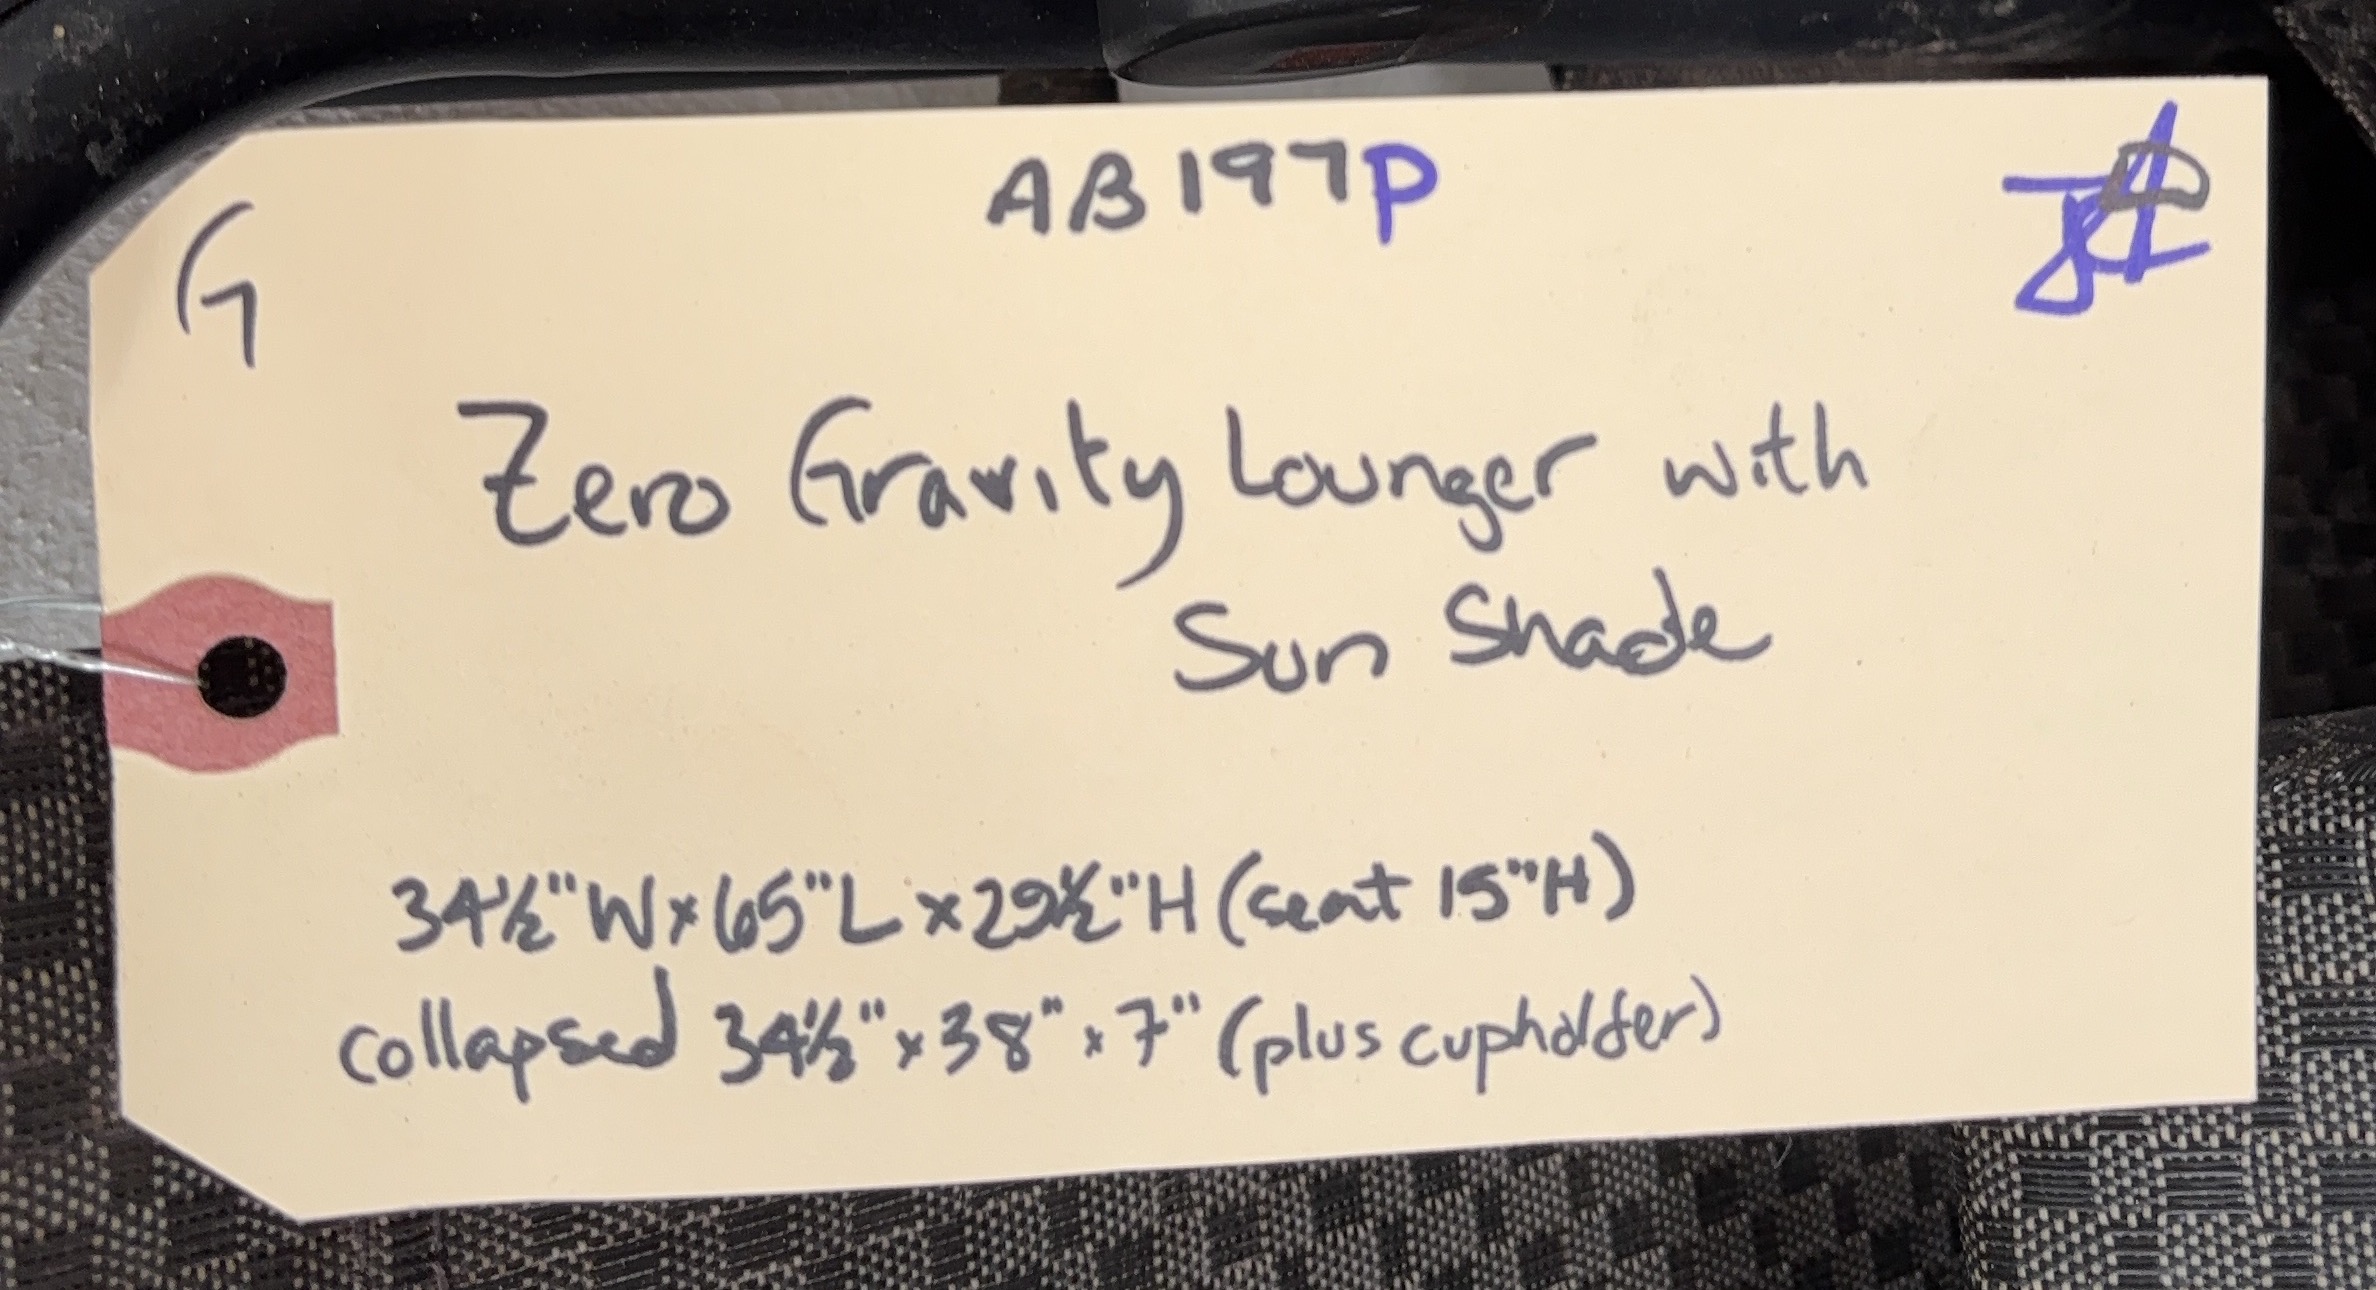 AB197P
G
Zero Gravity Lounger with
Sun Shade
34½"W×65"L×29½"H (seat 15"H)
collapsed 34½"×38"×7" (plus cupholder)